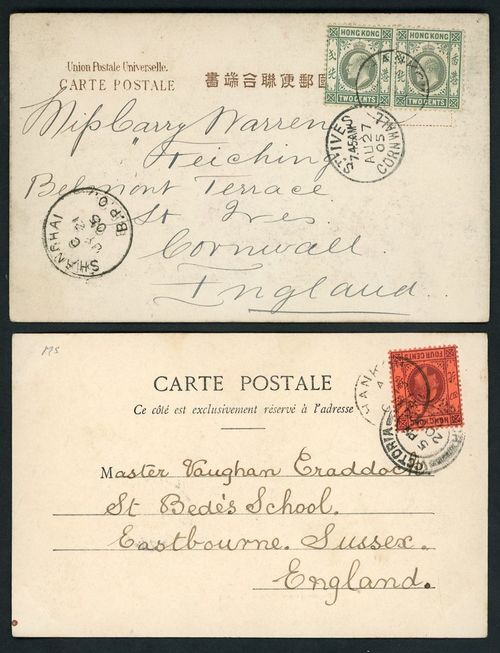 Union Postale Universelle.
CARTE POSTALE
書端合聯便郵國
HONG KONG
HONG KONG
TWO CENTS
TWO CENTS
ST. IVES
7.45AM
AU 27
05
CORNWALL
Miss Carry Warren
"Teiching"
Belmont Terrace
St Ives
Cornwall
England
SHANGHAI
B.P.O.
05
CARTE POSTALE
Ce côté est exclusivement réservé à l'adresse
FOUR CENTS
HONG KONG
HANK
VICTORIA
5 PM
Master Vaughan Craddock
St Bede's School.
Eastbourne. Sussex.
England.